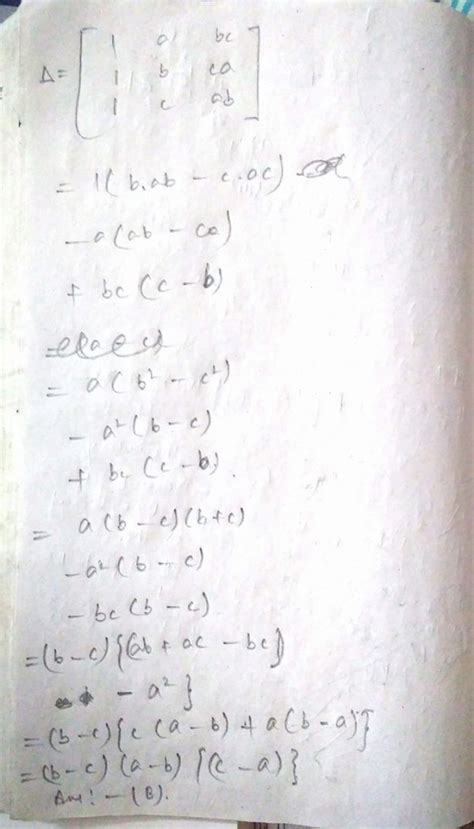 Δ = [ 1 a bc
1 b ca
1 c ab ]
= 1(b.ab - c.ac)
-a(ab - ca)
+ bc(c - b)
= a(b² - c²)
- a²(b-c)
+ bc(c-b).
= a(b-c)(b+c)
-a²(b-c)
-bc(b-c)
=(b-c){(ab+ac-bc)
- a²}
=(b-c){c(a-b)+a(b-a)}
=(b-c)(a-b){(c-a)}
Ans! - (B).